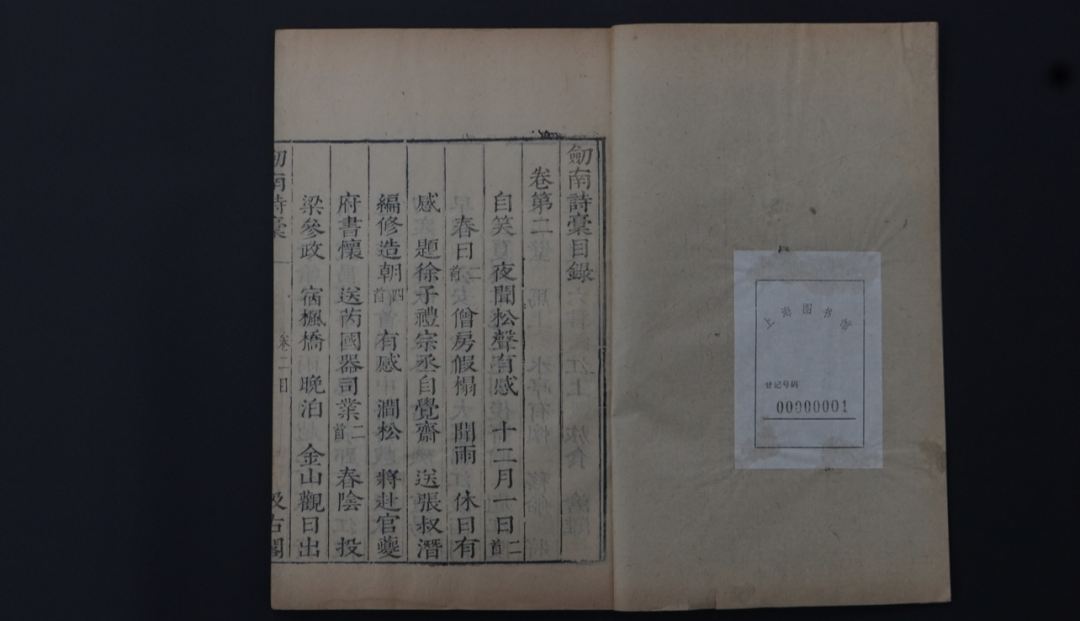 劒南詩稾目録
卷第二
自笑 夜聞松聲有感 十二月一日二首
春日二首 僧房假榻 聞雨 休日有
感 題徐子禮宗丞自覺齋 送張叔潛
編修造朝四首 有感 澗松 將赴官夔
府書懷 送芮國器司業二首 春陰 投
梁參政 宿楓橋 晩泊 金山觀日出
劒南詩稾 卷二目 汲古閣
上海图书馆
登记号码
00000001